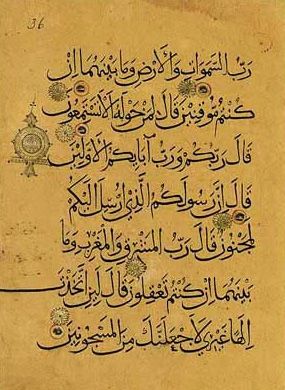 36
رَبُّ السَّمَوَاتِ وَالْأَرْضِ وَمَا بَيْنَهُمَا إِنْ
كُنْتُمْ مُوقِنِينَ قَالَ لِمَنْ حَوْلَهُ أَلَا تَسْتَمِعُونَ
قَالَ رَبُّكُمْ وَرَبُّ آبَائِكُمُ الْأَوَّلِينَ
قَالَ إِنَّ رَسُولَكُمُ الَّذِي أُرْسِلَ إِلَيْكُمْ
لَمَجْنُونٌ قَالَ رَبُّ الْمَشْرِقِ وَالْمَغْرِبِ وَمَا
بَيْنَهُمَا إِنْ كُنْتُمْ تَعْقِلُونَ قَالَ لَئِنِ اتَّخَذْتَ
إِلَهًا غَيْرِي لَأَجْعَلَنَّكَ مِنَ الْمَسْجُونِينَ